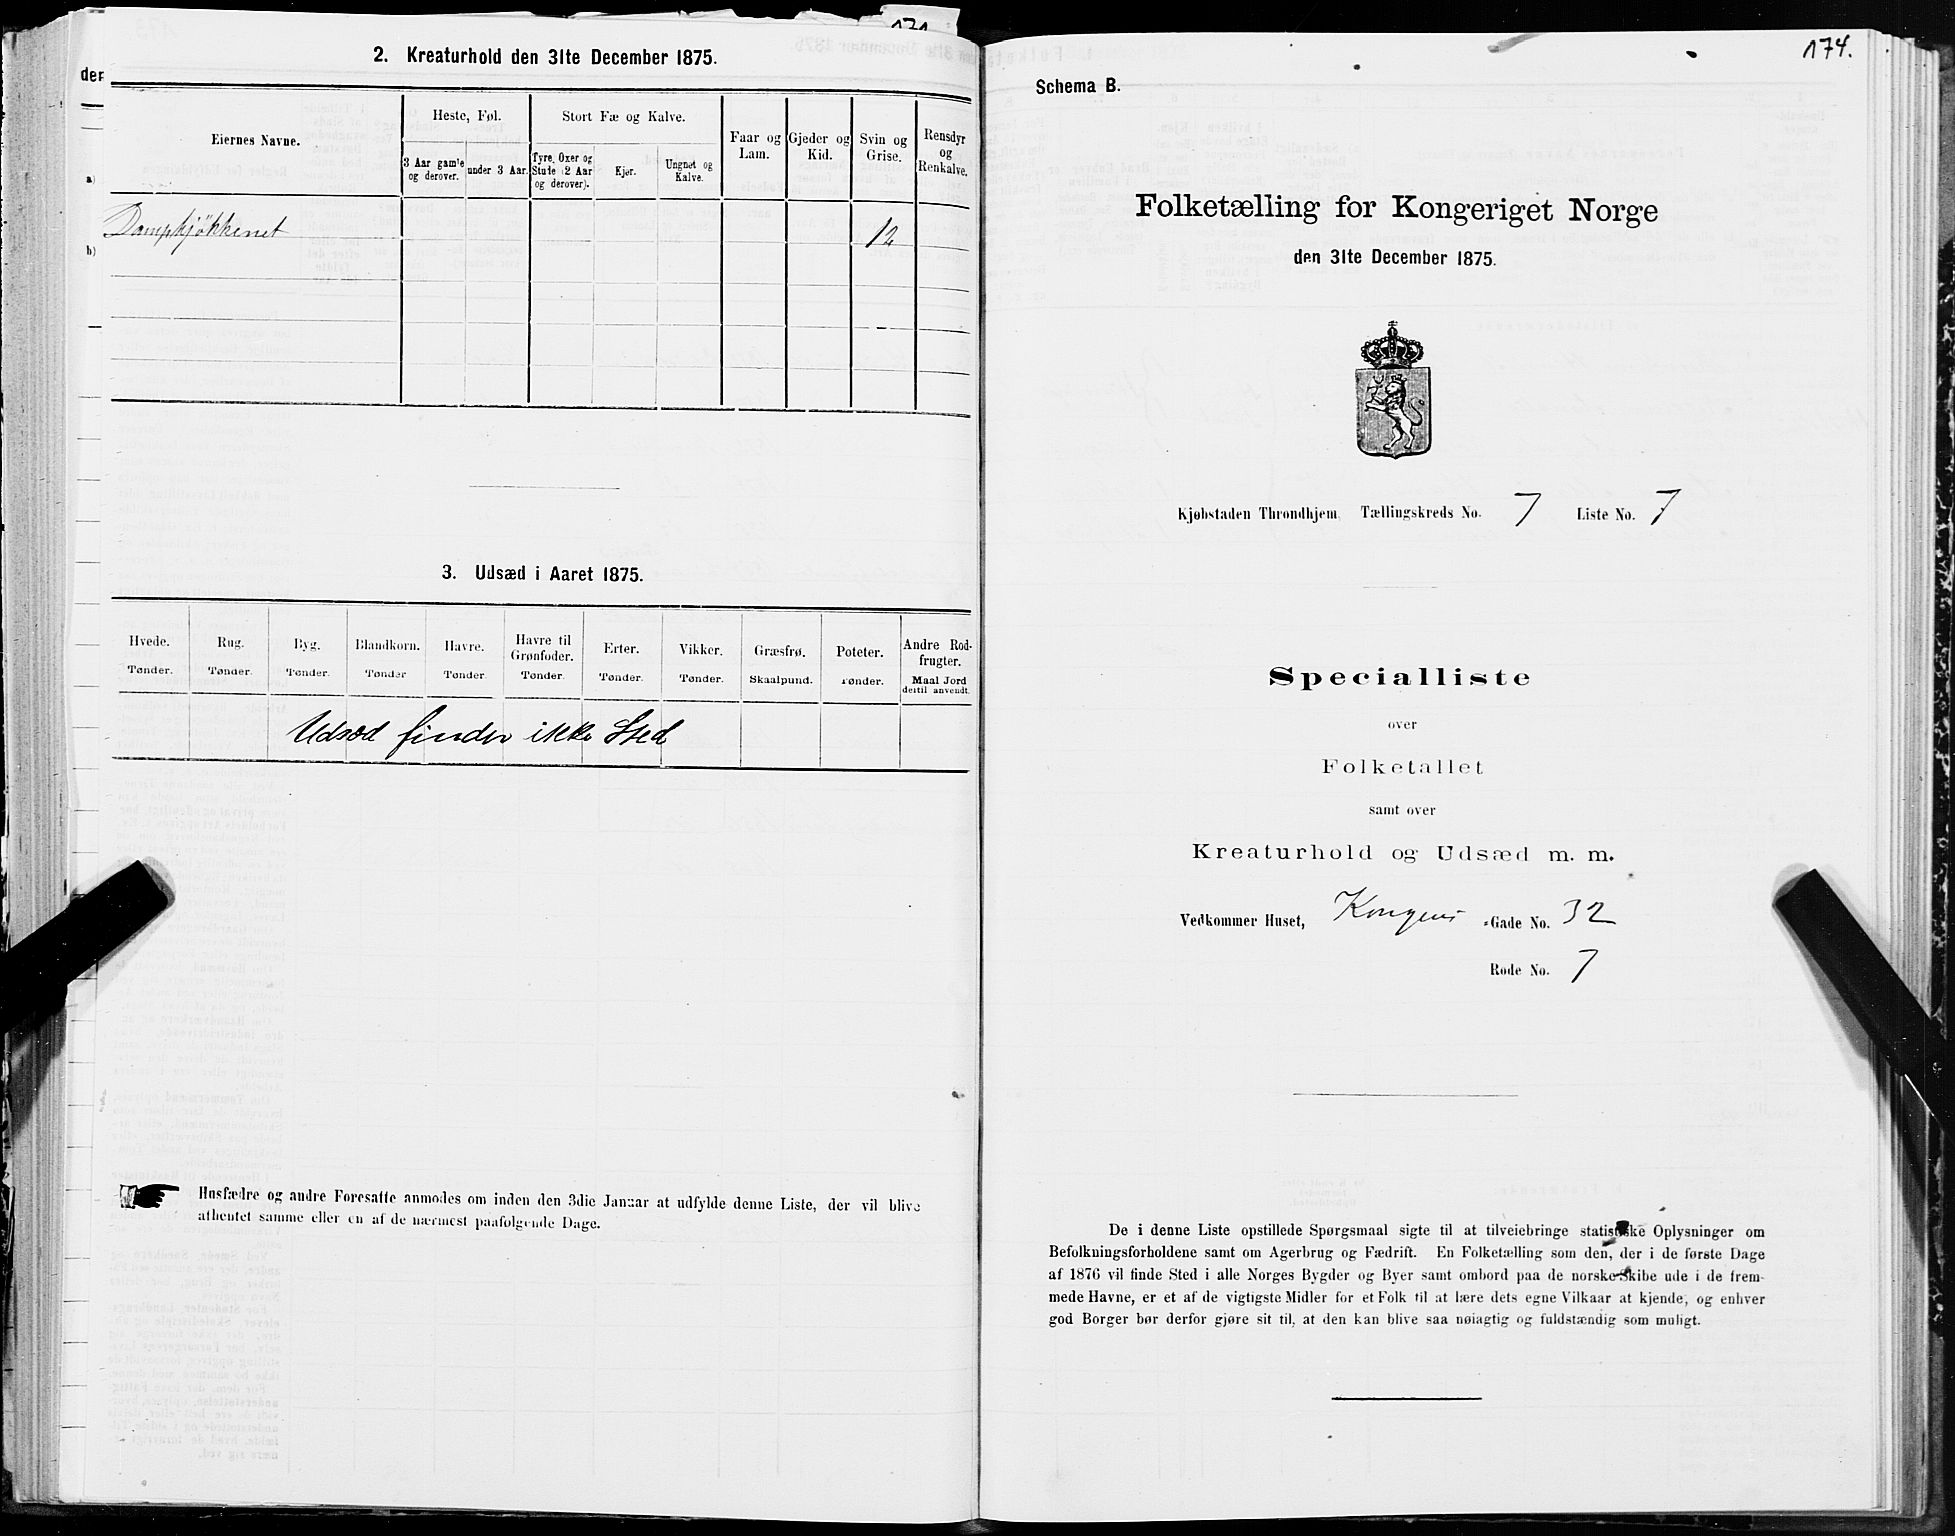 171.
2. Kreaturhold den 31te December 1875.
der
Eiernes Navne.
Heste, Føl.
Stort Fæ og Kalve.
Faar og Lam.
Gjeder og Kid.
Svin og Grise.
Rensdyr og Renkalve.
3 Aar gamle og derover.
under 3 Aar.
Tyre, Oxer og Stude (2 Aar og derover).
Kjør.
Ungnet og Kalve.
a)
b)
Dampkjøkkenet 12
3. Udsæd i Aaret 1875.
Hvede. Rug. Byg. Blandkorn. Havre. Havre til Grønfoder. Erter. Vikker. Græsfrø. Poteter. Andre Rodfrugter.
Tønder. Tønder. Tønder. Tønder Tønder. Tønder. Tønder. Tønder. Skaalpund. Tønder. Maal Jord dertil anvendt.
Udsæd finder ikke Sted
Husfædre og andre Foresatte anmodes om inden den 3die Januar at udfylde denne Liste, der vil blive
afhentet samme eller en af de nærmest paafølgende Dage.
174.
Schema B.
Folketælling for Kongeriget Norge
den 31te December 1875.
Kjøbstaden Throndhjem. Tællingskreds No. 7 Liste No. 7
Specialliste
over
Folketallet
samt over
Kreaturhold og Udsæd m. m.
Vedkommer Huset, Kongens -Gade No. 32
Rode No. 7
De i denne Liste opstillede Spørgsmaal sigte til at tilveiebringe statistiske Oplysninger om
Befolkningsforholdene samt om Agerbrug og Fædrift. En Folketælling som den, der i de første Dage
af 1876 vil finde Sted i alle Norges Bygder og Byer samt ombord paa de norske Skibe ude i de frem-
mede Havne, er et af de vigtigste Midler for et Folk til at lære dets egne Vilkaar at kjende, og enhver
god Borger bør derfor gjøre sit til, at den kan blive saa nøiagtig og fuldstændig som muligt.